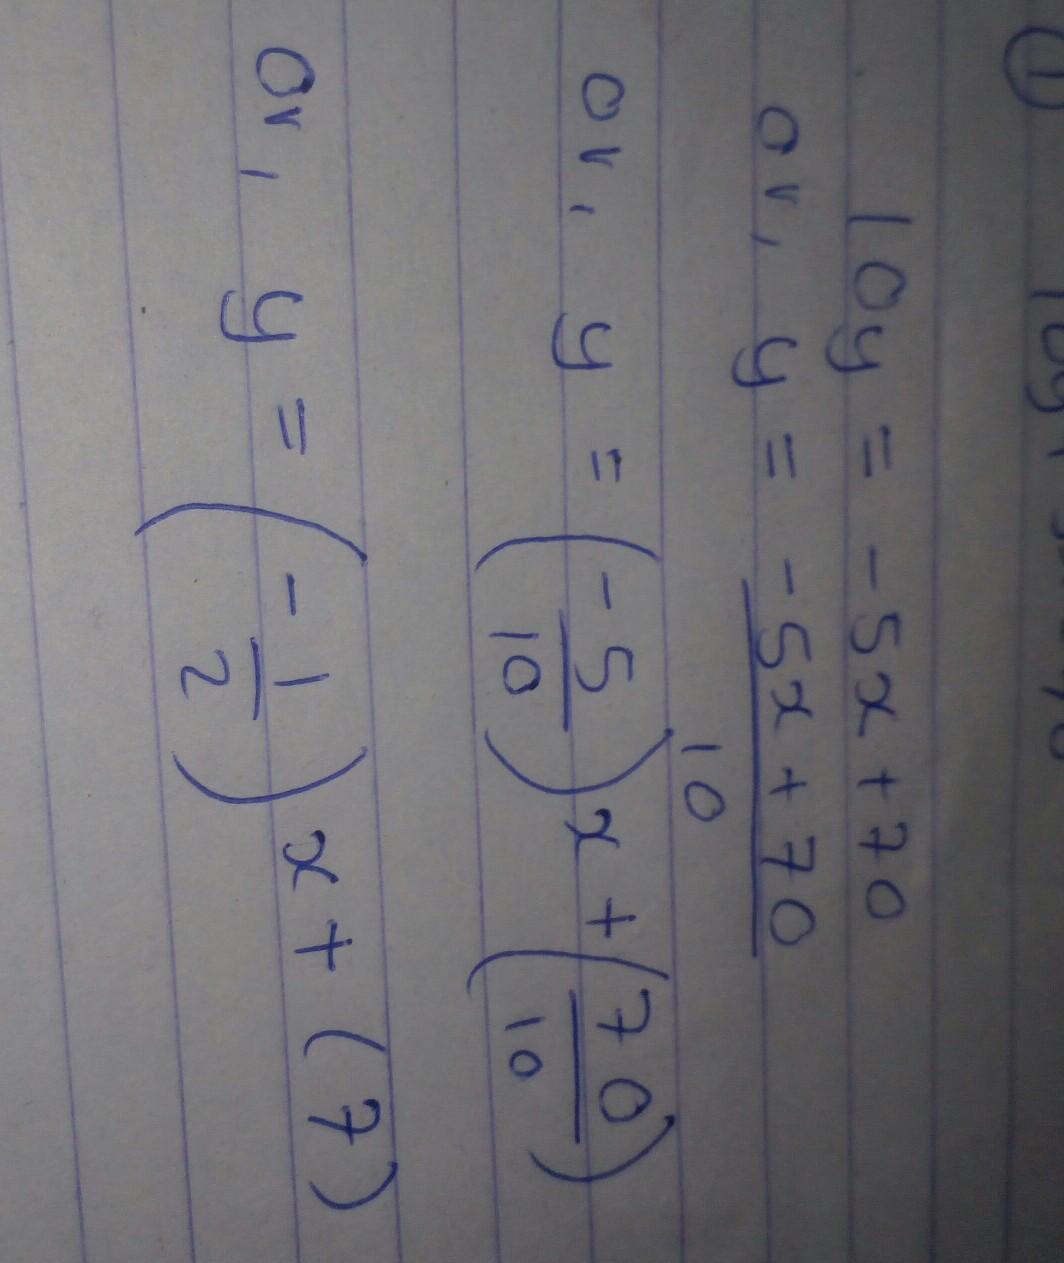 ①
10y = -5x + 70
or, y = -5x + 70 / 10
or, y = (-5/10)x + (70/10)
or, y = (-1/2)x + (7)